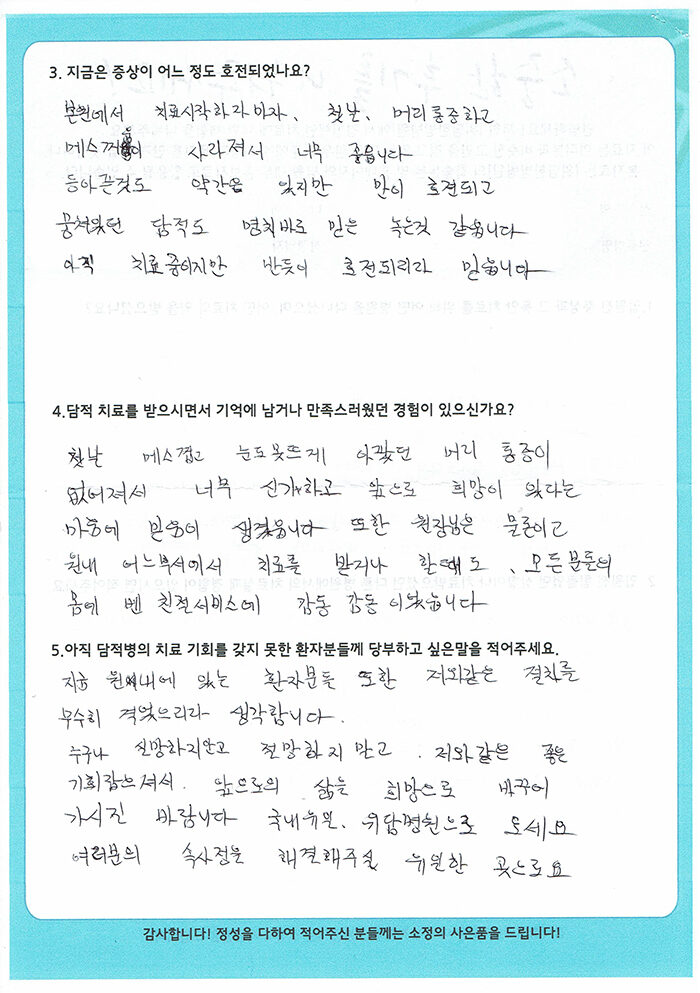 3. 지금은 증상이 어느 정도 호전되었나요?
본원에서 치료시작하자마자, 첫날, 머리통증하고
메스꺼움이 사라져서 너무 좋읍니다
등아픈것도 약간은 있지만 많이 호전되고
뭉쳐있던 담적도 명치바로 밑은 녹는것 같읍니다
아직 치료중이지만 반듯이 호전되리라 믿읍니다
4.담적 치료를 받으시면서 기억에 남거나 만족스러웠던 경험이 있으신가요?
첫날 메스껍고 눈도못뜨게 아팠던 머리 통증이
없어져서 너무 신기하고 앞으로 희망이 있다는
마음에 믿음이 생겼읍니다 또한 원장님은 물론이고
원내 어느부서에서 치료를 받거나 할때도, 모든분들의
몸에 벤 친절서비스에 감동 감동이였읍니다
5.아직 담적병의 치료 기회를 갖지 못한 환자분들께 당부하고 싶은말을 적어주세요.
지금 원내에 있는 환자분들 또한 저와같은 절차를
무수히 격었으리라 생각합니다.
누구나 실망하지안고 절망하지 말고. 저와같은 좋은
기회잡으셔서. 앞으로의 삶을 희망으로 바꾸어
가시진 바랍니다 국내유일. 위담병원으로 오세요
여러분의 속사정을 해결해주실 유일한 곳으로요
감사합니다! 정성을 다하여 적어주신 분들께는 소정의 사은품을 드립니다!